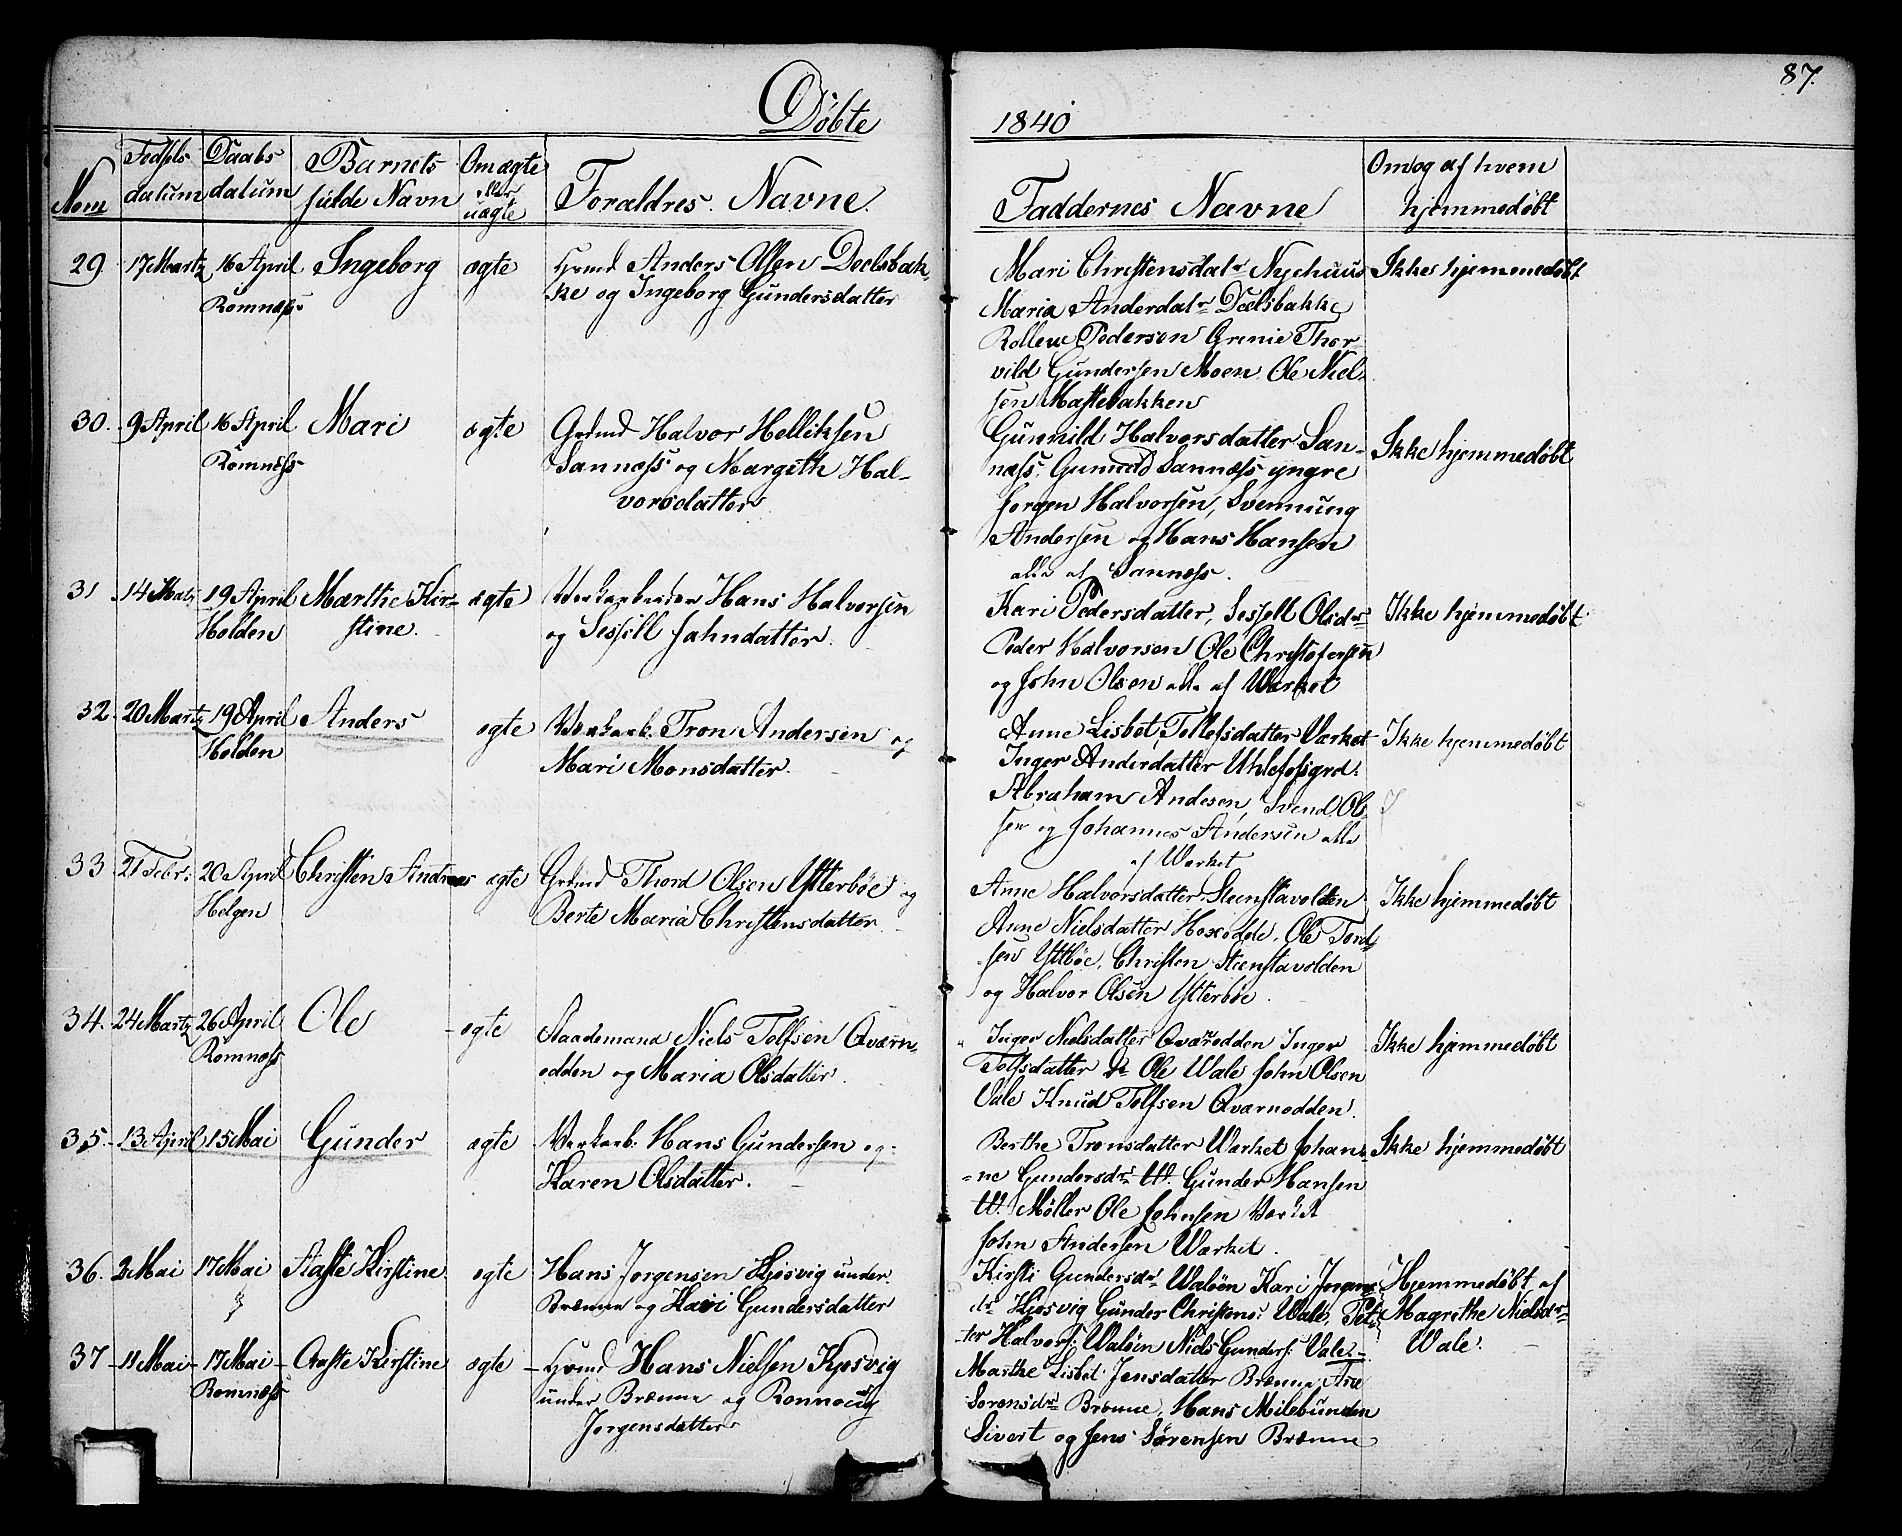 87.
Döbte
1840
Nom
Fødsels datum
Daabs datum
Barnets fulde Navn
Om ægte eller uægte
Forældres Navne.
Faddernes Navne
Om og af hvem hjemmedøbt
29 17 Martz 16 April Ingeborg ægte
Romnæss
Anders Olsen Deelsbak-
ke og Ingeborg Gundersdatter
Mari Christensdatr Nyehuus
Maria Anderdatr Deelsbakke
Pedersen Grinie Thor-
vild Gundersen Moen, Ole Niel-
sen Mastebakken
Ikke hjemmedøbt
30. 9 April 16 April Mari ægte
Romnæss
Grdmd Halvor Helliksen
Sannæss og Margith Hal-
vorsdatter
Gunnild Halvorsdatter San-
næss, Gunuld Sannæss yngre
Jorgen Halvorsen, Svennung
Andersen og Hans Hansen
alle af Sannæss.
Ikke hjemmedøbt
31 14 19 April Marthe Kir-
stine.
Holden
ægte
Værkarbeider Hans Halvorsen
og Sessill Jahndatter.
Kari Pedersdatter, Sessell Olsdr
Peder Halvorsen Ole Christofersen
og John Olsen alle af Værket
Ikke hjemmedøbt
32. 20 Martz 19 April Anders ægte
Holden
Værkarb. Tron Andersen og
Mari Monsdatter.
Anne Lisbet Tollefsdatter Værket
Inger Anderdatter Uhlefosgrd.
Abraham Andesen, Svend Ol-
sen og Johannes Andersen alle
af Værket
Ikke hjemmedøbt
33 21 Febr. 20 April Christen Andreas ægte
Helgen
Grdmd Thord Olsen Ytterböe og
Berte Maria Christensdatter
Anne Halvorsdatter Steenstavolden
Anne Nielsdatter Hoxodde, Ole Tord-
sen Yttböe, Christen Steenstavolden
og Halvor Olsen Ytterböe.
Ikke hjemmedøbt
34. 24 Martz 26 April Ole ægte
Romnæss
Niels Tolfsen Qværn-
odden og Maria Olsdatter.
Inger Nielsdatter Qværodden Inger
Tolfsdatter do Ole Wale John Olsen
Vale Knud Tolfsen Qvarnodden.
Ikke hjemmedøbt
35. 13 April 15 Mai Gunder ægte
Værkarb. Hans Gundersen og
Karen Olsdatter.
Berthe Tronsdatter Værket Johan-
ne Gundersdr W. Gunder Hansen
W. Møller Ole Johnsen Værket
John Andersen Værket.
Ikke hjemmedøbt
36. 2 Mai 17 Mai Aaste Kirstine ægte
Hans Jorgensen Kjosvig under
Brænne og Kari Gundersdatter
Kirsti Gundersdr Waløen Kari Jorgens-
dr Kjosvig Gunder Christens. Wale, Pet-
ter Halvors. Waløen Niels Gunders. Vale.
Hjemmedøbt af
Magrethe Nielsdr
Wale.
37 11 Mai 17 Mai Aaste Kirstine ægte
Romnæss
Hans Nielsen Kjosvig
under Brænne og Ronnoug
Jorgensdatter
Marthe Lisbet Jensdatter Brænne, Ane
Sorensdr Brænne, Hans Milebunden
Sivert og Jens Sørensen Brænne